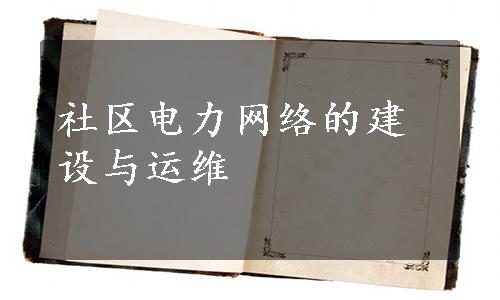 社区电力网络的建
设与运维